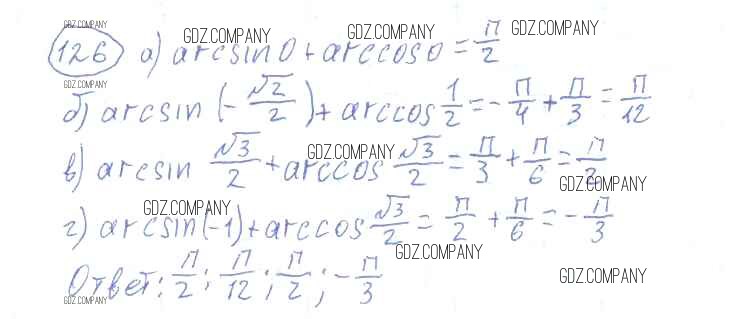 GDZ.COMPANY GDZ.COMPANY GDZ.COMPANY GDZ.COMPANY
126 а) arcsin 0 + arccos 0 = π/2
GDZ.COMPANY
б) arcsin (-√2/2) + arccos 1/2 = -π/4 + π/3 = π/12
в) arcsin √3/2 + arccos √3/2 = π/3 + π/6 = π/2
GDZ.COMPANY GDZ.COMPANY
г) arcsin(-1) + arccos √3/2 = π/2 + π/6 = -π/3
GDZ.COMPANY GDZ.COMPANY
Ответ: π/2; π/12; π/2; -π/3
GDZ.COMPANY GDZ.COMPANY